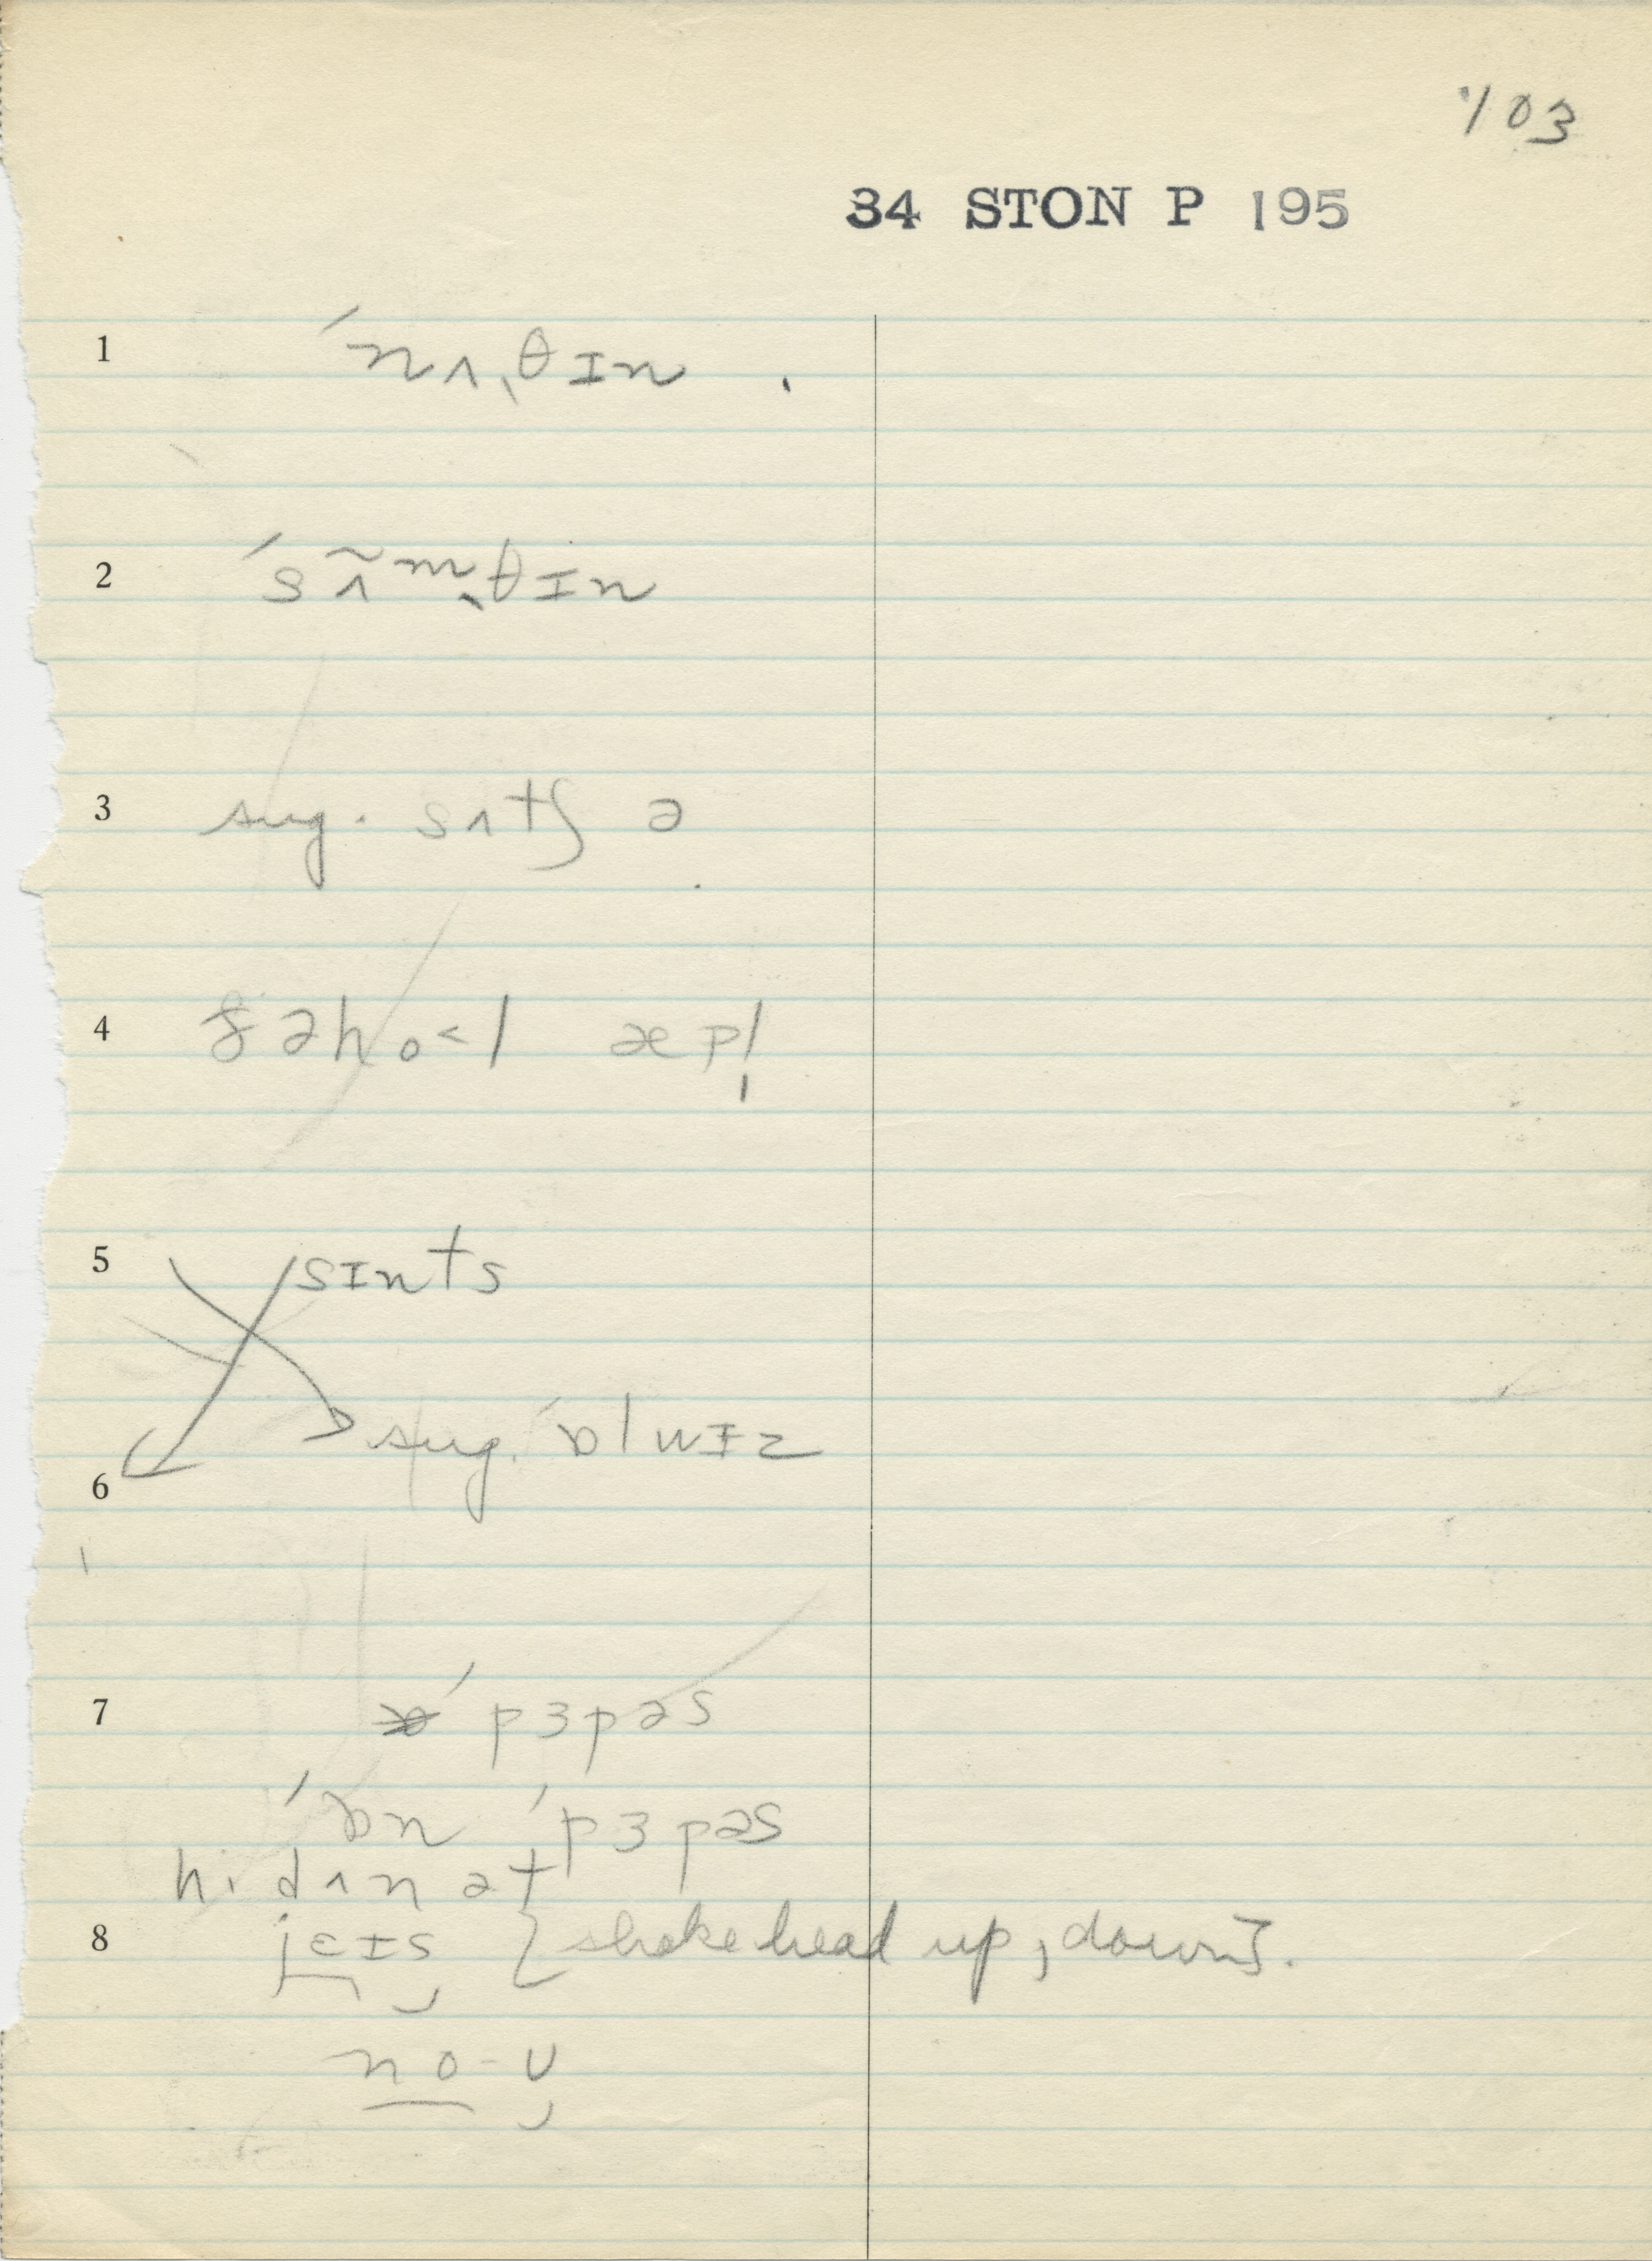 103
34 STON P 195
1 ˊnʌ̖θɪn
2 ˊsʌ̃ᵐ̖θɪn
3 sug. sʌtʃ ə
4 ðəho˂l æpl̩
5 sɪnts
sug. ˊɒlwɪz
6
7 ˊpɜpəs
ˊɒn ˊpɜpəs
hi dʌnət
8 jɛɪs {shake head up, down}.
no-ʊ